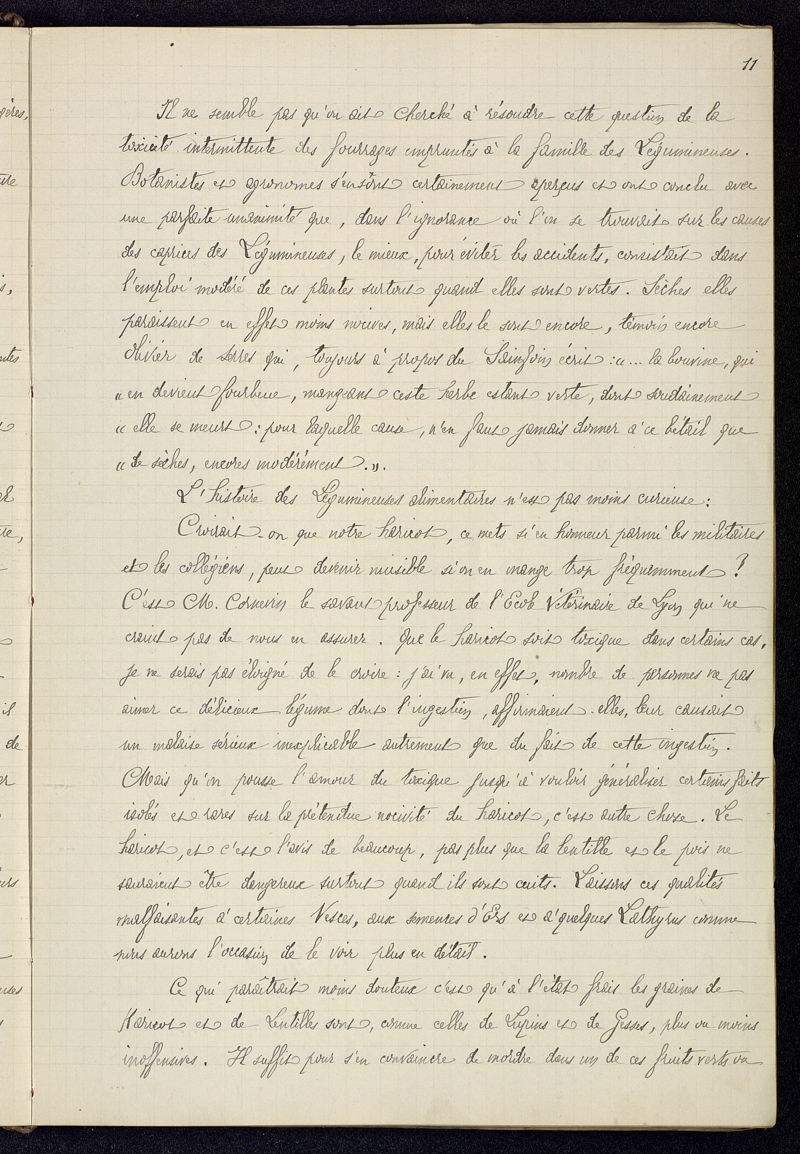 11
Il ne semble pas qu'on ait cherché à résoudre cette question de la
toxicité intermittente des fourrages empruntés à la famille des Légumineuses.
Botanistes et agronomes s'en sont certainement aperçus et ont conclu avec
une parfaite unanimité que, dans l'ignorance où l'on se trouvait sur les causes
des caprices des Légumineuses, le mieux, pour éviter les accidents, consistait dans
l'emploi modéré de ces plantes surtout quand elles sont vertes. Sèches elles
paraissent en effet moins nocives, mais elles le sont encore, témoin encore
Olivier de Serres qui, toujours à propos du Sainfoin écrit : "... la bouvine, qui
" en devient fourbeue, mangeant ceste herbe estant verte, dont soudainement
" elle se meurt : pour laquelle cause, n'en faut jamais donner à ce bétail que
" de sèches, encores modérément.".
L'histoire des Légumineuses alimentaires n'est pas moins curieuse :
Croirait-on que notre haricot, ce mets si en honneur parmi les militaires
et les collégiens, peut devenir nuisible si on en mange trop fréquemment ?
C'est M. Cornevin le savant professeur de l'Ecole Vétérinaire de Lyon qui ne
craint pas de nous en assurer. Que le haricot soit toxique dans certains cas,
je ne serais pas éloigné de le croire : j'ai vu, en effet, nombre de personnes ne pas
aimer ce délicieux légume dont l'ingestion, affirmaient-elles, leur causait
un malaise sérieux inexplicable autrement que du fait de cette ingestion.
Mais qu'on pousse l'amour du toxique jusqu'à vouloir généraliser certains faits
isolés et rares sur la prétendue nocivité du haricot, c'est autre chose. Le
haricot, et c'est l'avis de beaucoup, pas plus que la lentille et le pois ne
sauraient être dangereux surtout quand ils sont cuits. Laissons ces qualités
malfaisantes à certaines Vesces, aux semences d'Ers et à quelques Lathyrus comme
nous aurons l'occasion de le voir plus en détail.
Ce qui paraîtrait moins douteux c'est qu'à l'état frais les graines de
Haricot et de Lentilles sont, comme celles de Lupins et de Gesses, plus ou moins
inoffensives. Il suffit pour s'en convaincre de mordre dans un de ces fruits verts ou